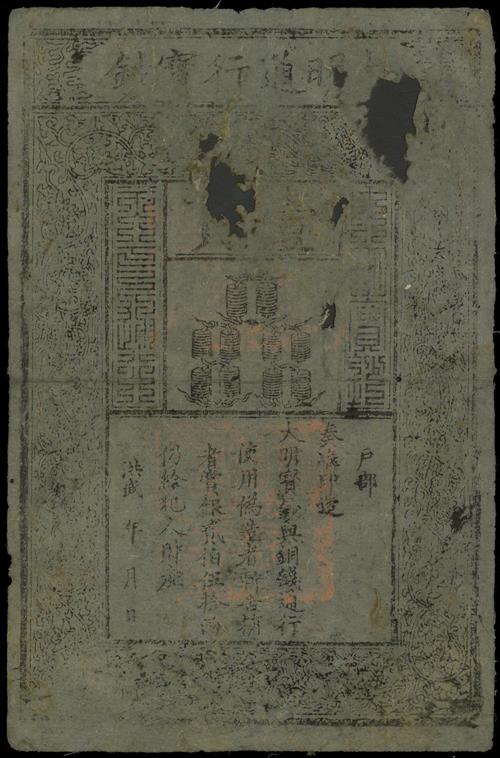 明通行寶鈔
戶部
奏准印造
大明寶鈔與銅錢通行
使用偽造者斬告捕
者賞銀貳伯伍拾兩
仍給犯人財產
洪武 年 月 日